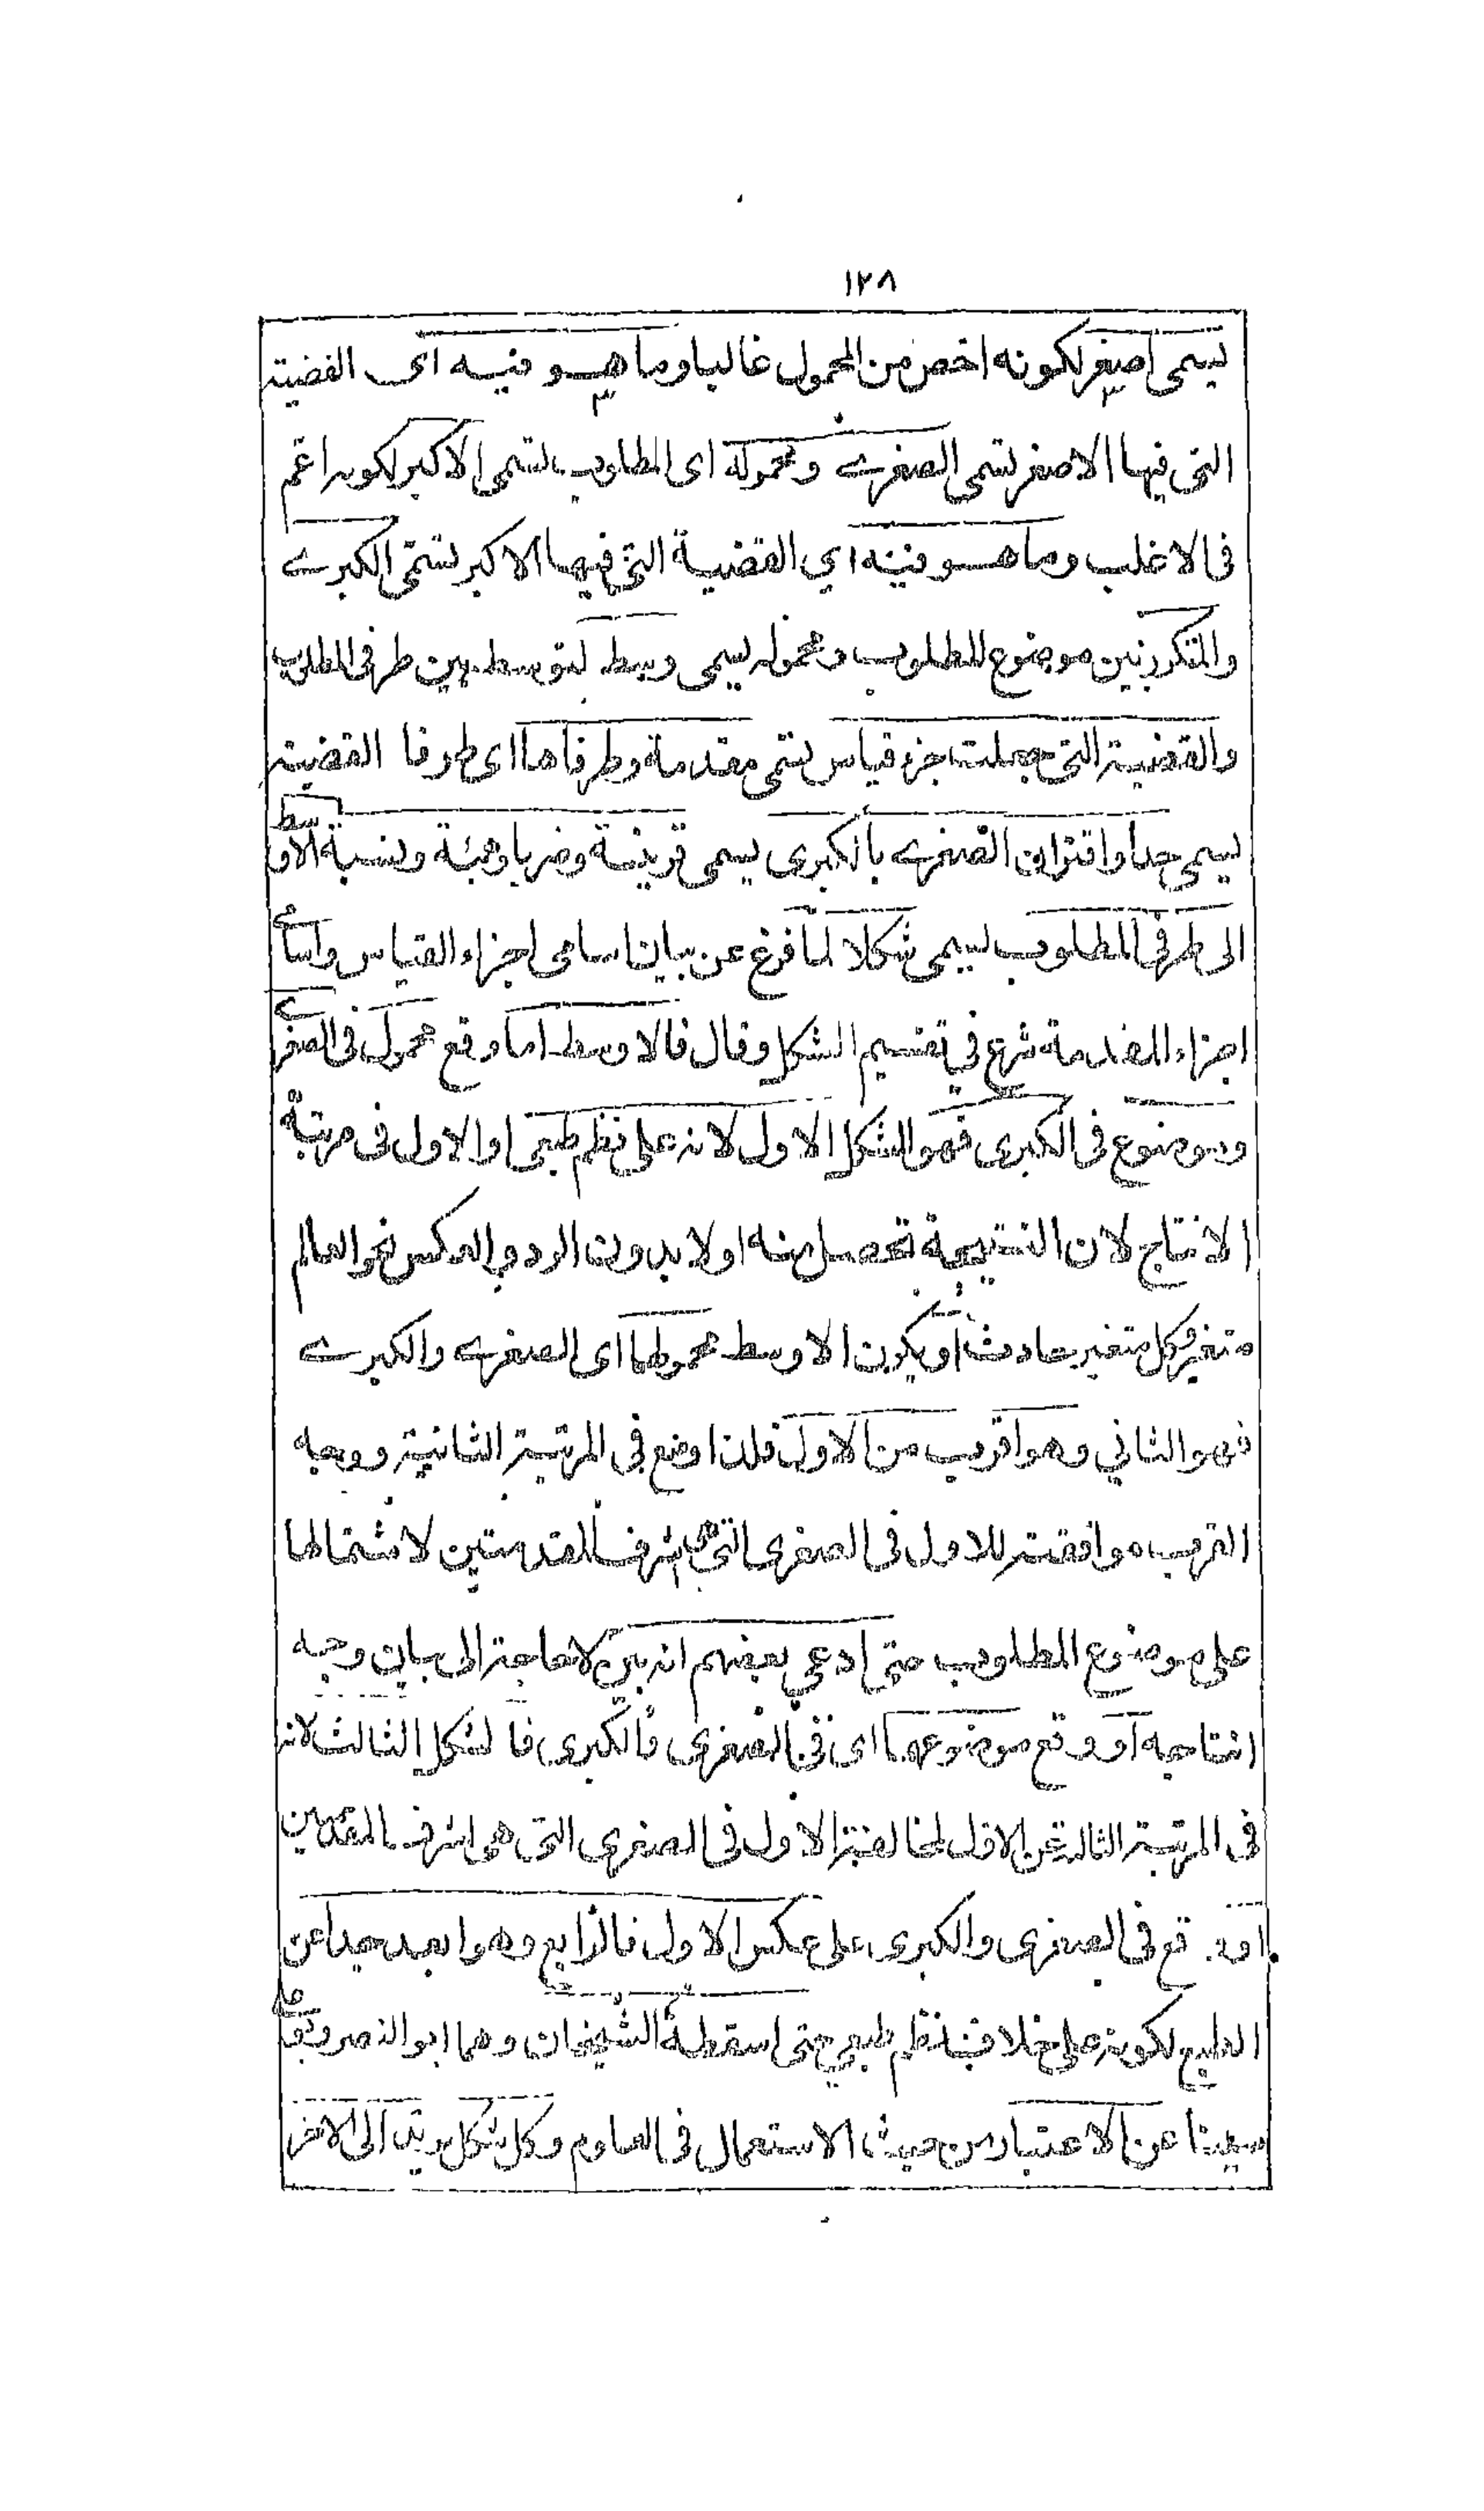 ١٢٨
يسمى اصغر لكونه اخص من المحمول غالبا وما هو فيه اى القضية
التى فيها الاصغر تسمى الصغرے ومحموله اى المطلوب يسمى الاكبر لكونه اعم
فى الاغلب وما هو فيه اي القضية التى فيها الاكبر تسمى الكبرے
والمتكرر بين موضوع المطلوب ومحموله يسمى وسط لتوسطه بين طرفى المطلوب
والقضية التى جعلت جزء قياس تسمى مقدمة وطرفاها اى طرفا القضية
يسمى حدا واقتران الصغرے بالكبرى يسمى قرينة وضربا وهيئة ونسبة الاوسط
الى طرفى المطلوب يسمى شكلا لما فرغ عن بيان اسامى اجزاء القياس واسامے
اجزاء المقدمة شرع في تقسيم الشكل وقال فالاوسط اما وقع محمول فى الصغرے
وموضوع فى الكبرى فهو الشكل الاول لانه على نظم طبعى او الاول فى مرتبة
الانتاج لان النتيجة تحصل منه اولا بدون الرد والعكس نحو العالم
متغير وكل متغير حادث او يكون الاوسط محمولهما اى الصغرے والكبرے
فهو الثاني وهو اقرب من الاول فلذا وضع فى المرتبة الثانية ووجه
القرب موافقته للاول فى الصغرى التى هى اشرف المقدمتين لاشتمالها
على موضوع المطلوب حتى ادعي بعضهم انه بين لاحاجة الى بيان وجه
انتاجه او وقع موضوعهما اى فى الصغرى والكبرى فالشكل الثالث لانه
فى المرتبة الثالثة عن الاول لمخالفته الاول فى الصغرى التى هى اشرف المقدمتين
او وقع فى الصغرى والكبرى على عكس الاول فالرابع وهو ابعد جدا عن
الطبع لكونه على خلاف نظم طبعي حتى اسقطه الشيخان وهما ابو النصر وبو على
سينا عن الاعتبار من حيث الاستعمال فى العلوم وكل شكل يرتد الى الاخر